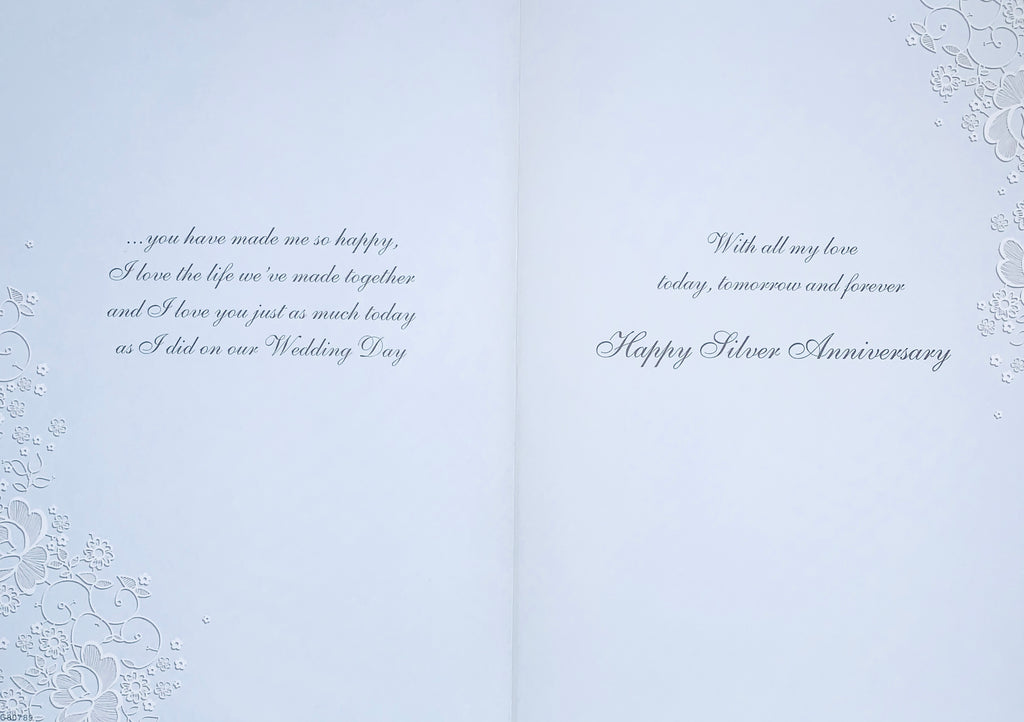 ...you have made me so happy,
I love the life we've made together
and I love you just as much today
as I did on our Wedding Day
With all my love
today, tomorrow and forever
Happy Silver Anniversary
G80789